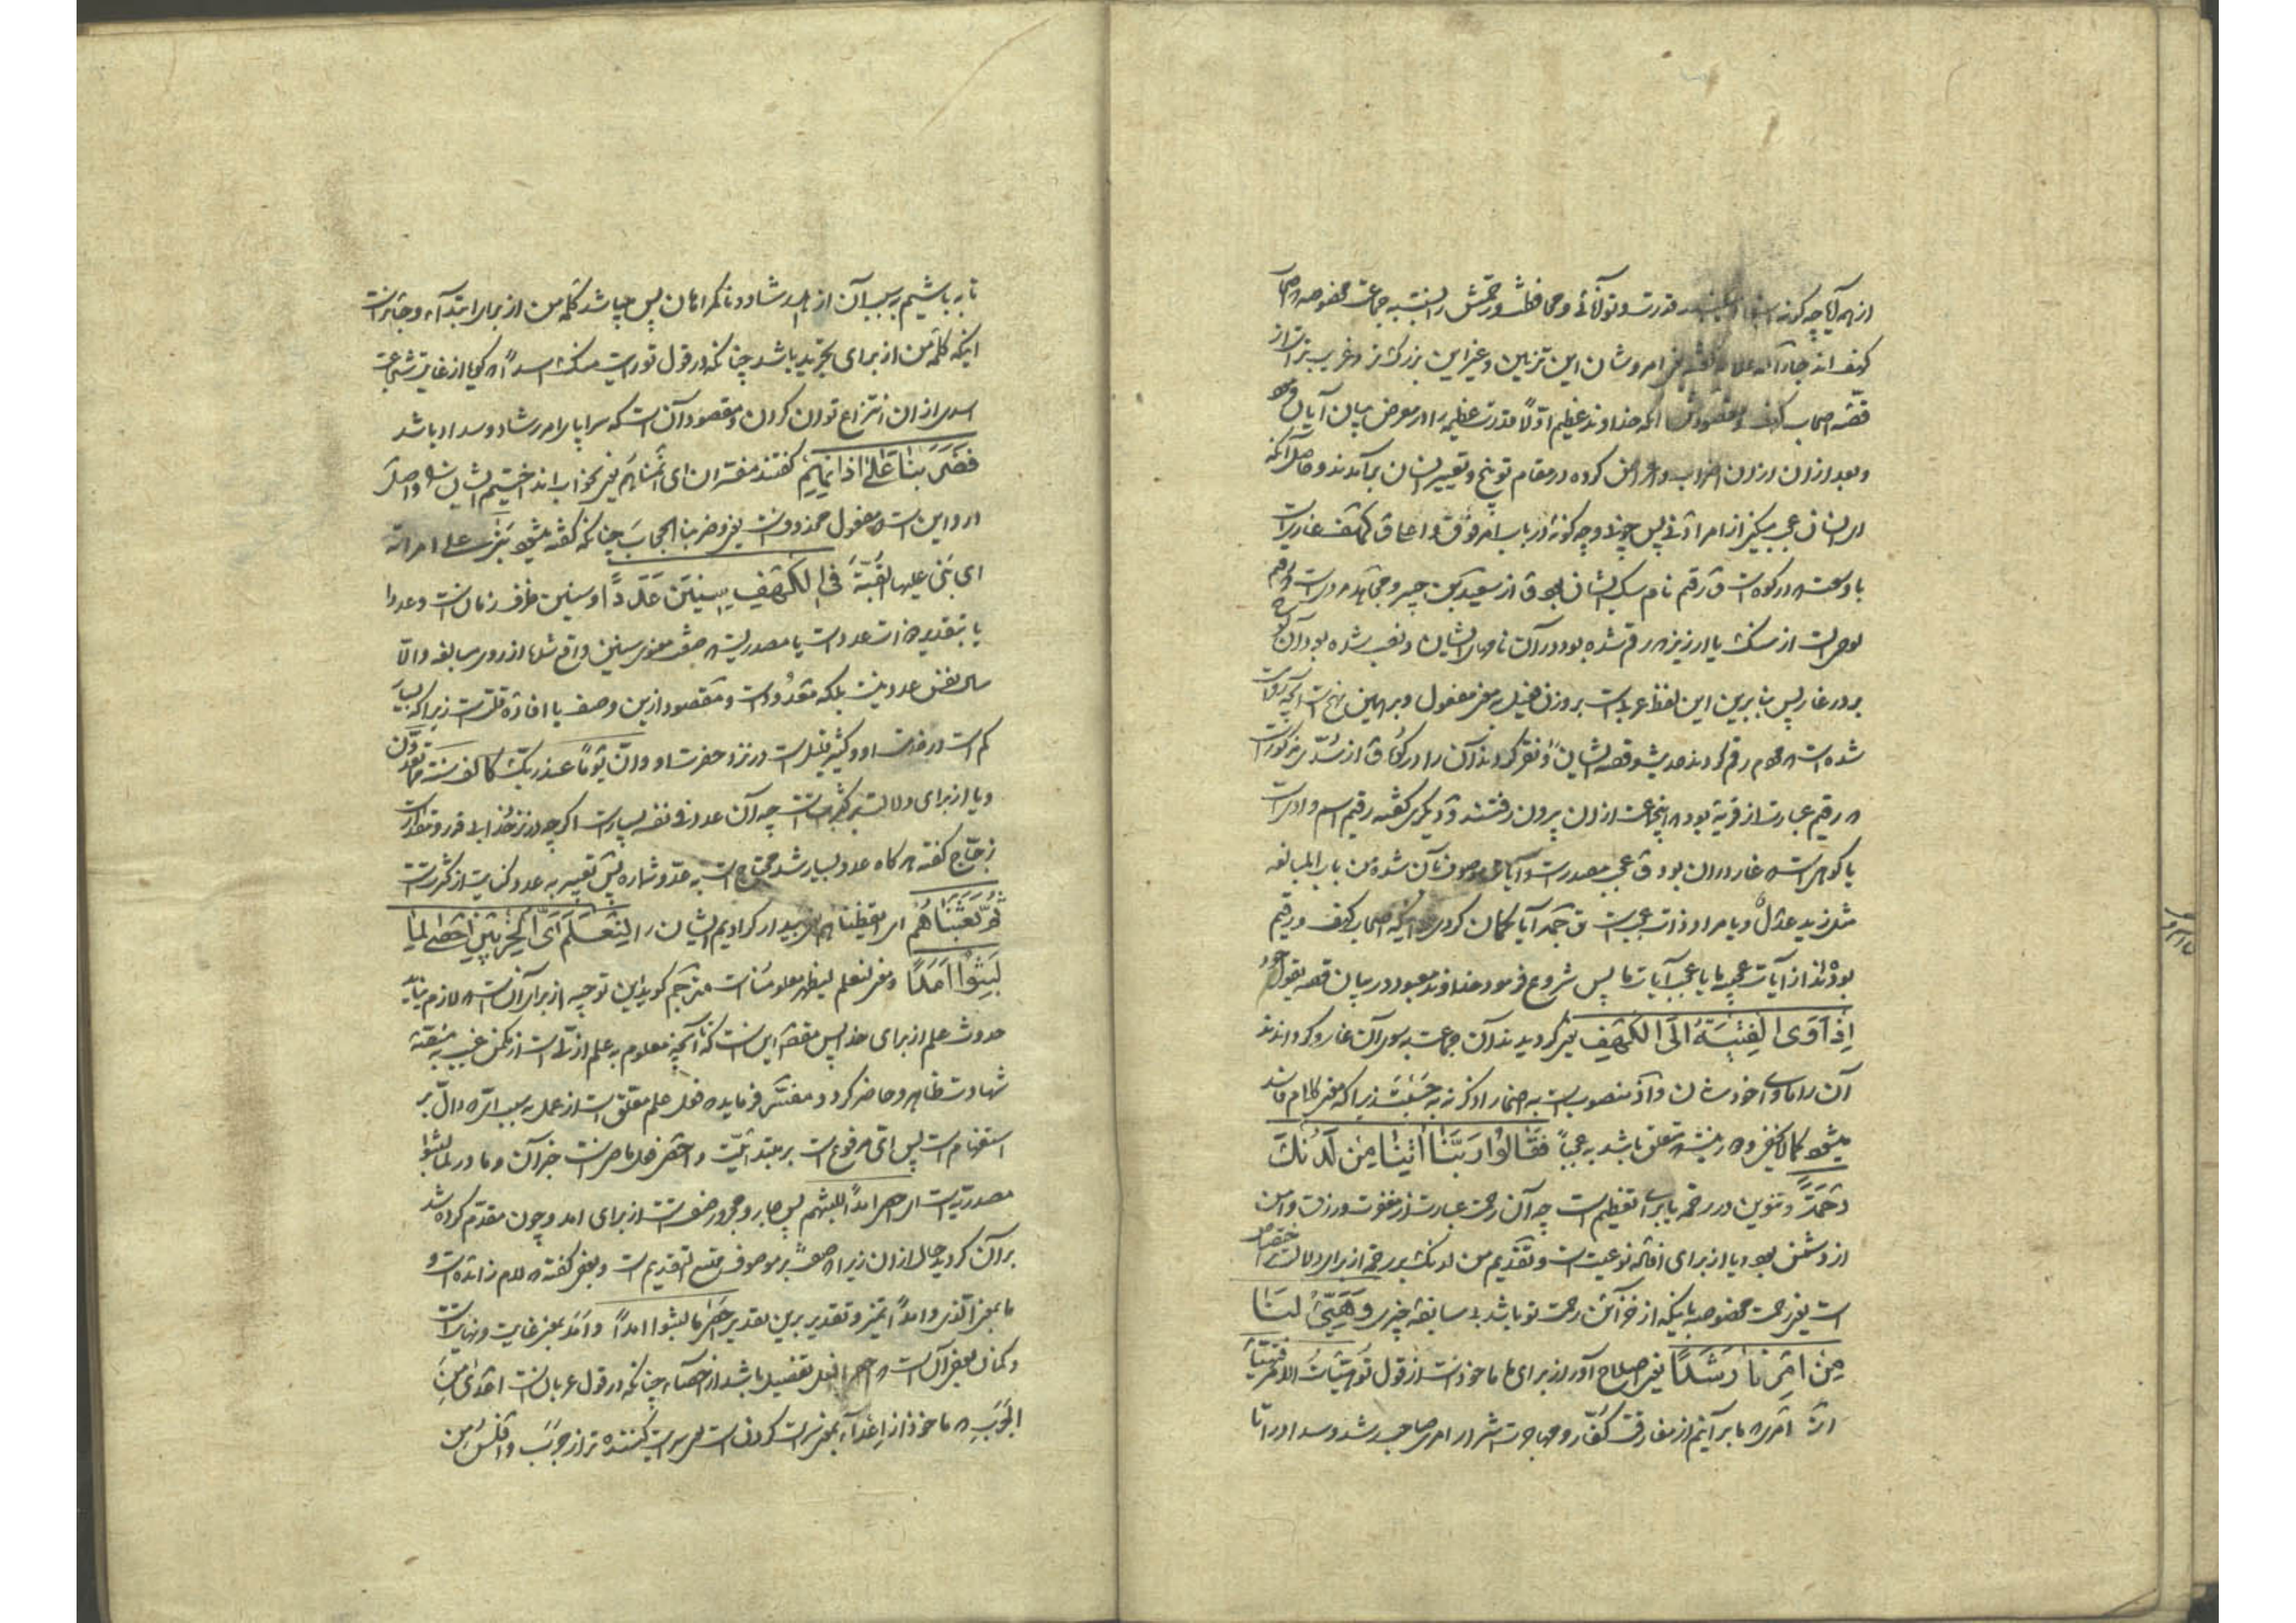 از همه آیا چه گونه قدرت و توانائی و محافظت و رحمتش را نسبت به جماعت مخصوصه اصحاب
کهف اند جار الله علامه گفته یعنی امر و شان این تزیین و غیر این بزرگتر و غریب تر است از
قصّه اصحاب کهف و مقصودش آنکه خداوند عظیم اوّلاً قدرت عظیمه را در معرض بیان آیات
و بعد از ان از ان اضراب و اعراض کرده در مقام توبیخ و تعییر انسان برآمدند و حاصل آنکه
ای انسان عجب میکنی از امر ادنی پس چون و چه گونه در باب امر فوق و اعلا ق کهف غاریست
با وسعت که در کوه است ق رقیم نام سگ ایشان بود ق از سعید بن جبیر و مجاهد مرویست رقیم
لوحی است از سنگ یا ارزیز که رقم شده بود در آن نامهای ایشان و نصب شده بود آن
بر در غار پس بنا برین این لفظ عربیست بر وزن فعیل به معنی مفعول و بر همین نهج است آنچه
شده است که مردم رقم کردند حدیث و قصه ایشان و نقر کردند آن را در کوه ق از سُدّی مذکور است
که رقیم عبارت از قریۀ بود که اینجماعت از ان بیرون رفتند و دیگری گفته رقیم اسم وادی است
یا کوهی است که غار در ان بود ق عجب مصدر است و آیات موصوف بآن شده من باب المبالغه
مثل زید عدلٌ و یا مراد ذات عجب است ق حَمد آیا گمان کردی اینکه اصحاب کهف و رقیم
بودند از آیات عجیبه ما یا عجب آیات ما پس شروع فرمود خداوند معبود در بیان قصه بقوله
اِذْ اَوَی الْفِتْیَةُ اِلَی الْکَهْفِ یعنی گردیدند آن جماعت به سوی آن غار و گردانیدند
آن را ماوی خودشان و اذ منصوب است به اضمار اذکر نه به حَسِبْتَ زیرا که معنی کلام فاسد
میشود کما لا یخفی و رمیشه متعلق باشد به عجباً فَقَالُوا رَبَّنَا اٰتِنَا مِنْ لَدُنْکَ
رَحْمَةً و تنوین در رحمة یا برای تعظیم است چه آن رحمت عبارت از مغفرت و رزق و امن
از دشمن بود و یا از برای افاده نوعیت است و تقدیم من لدنک بر رحمة از برای دلالت بر اختصاص
است یعنی رحمت مخصوصه باینکه از خزآئن رحمت تو باشد بی سابقه چیزی وَهَیِّئْ لَنَا
مِنْ اَمْرِنَا رَشَدًا یعنی اصلاح آور از برای ما ماخوذ است از قول تو هیّأتُ الامر فتهیّأ
امری که ما بر آنیم از مفارقت کفّار و مهاجرت اشرار امر صاحب رشد و سداد را تا
تا به باشیم به سبب آن از اهل رشاد و نه گمراهان پس میباشد کلمه من از برای ابتدآء و جایز است
اینکه کلمه من از برای تجرید باشد چنانکه در قول تو رایت منک اسداً که گویا از غایت شجاعت
اسدی از ان انتزاع توان کردن و مقصود آن است که سراپا امر رشاد و سداد باشد
فَضَرَبْنَا عَلٰی اٰذَانِهِمْ گفتند مفسّران ای انمناهم یعنی بخوابانداختیم ایشان را و اصل
در و این است که مفعول محذوف است یعنی و ضربنا الحجابَ چنانکه گفته میشود بَنٰی علی امراته
ای بَنٰی علیها القُبّةَ فِی الْکَهْفِ سِنِینَ عَدَدًا و سنین ظرف زمان است و عددا
یا بتقدیر ذات عدد است یا مصدریست که صفت معنوی سنین واقع شده از روی مبالغه و الّا
سال نفس عدد نیست بلکه معدود است و مقصود ازین وصف یا افاده قلّت است زیرا که بسیار
کم است در خدمت او و کثیر قلیل است در نزد حضرت او و اِنّ یوماً عند ربّک کالف سنة ممّا تعدّون
و یا از برای دلالت بر کثرتست چه آن عدد فی نفسه بسیار است اگر چه در نزد خدا بی قدر و مقدار است
زجّاج گفته که گاه عدد بسیار شد محتاج است به عدّ و شماره پس تعبیر به عدد کنایت از کثرت است
ثُمَّ بَعَثْنَاهُمْ ای ایقظناهم یعنی بیدار کرادیم ایشان را لِنَعْلَمَ اَیُّ الْحِزْبَیْنِ اَحْصٰی لِمَا
لَبِثُوا اَمَدًا و معنی لنعلم لیظهر معلومنا است مترجم گوید این توجیه از برای آن است که لازم نیاید
حدوث علم از برای خدا پس مقصد این است که تا آنچه معلوم به علم ازلی است از مکمن غیب به منصّه
شهادت ظاهر و حاضر گردد مفسّر فرماید که فعل علم معلّق است از عمل به سبب ایّ که دالّ بر
استفهام است پس ایّ مرفوع است بر مبتدائیّت و احصی فعل ماضی است خبر آن و ما در لما لبثوا
مصدریّه است ای احصی امداً للبثهم پس جار و مجرور صفت است از برای امد و چون مقدّم کرده شد
بر آن گردید حال از ان زیرا که صفت بر موصوف ممتنع التقدیم است و بعضی گفته که لام زائده است و
ما بمعنی الّذی و امداً تمیز و تقدیر برین تقدیر احصی ما لبثوا امداً و اَمَد بمعنی غایت و نهایت است
و گمان بعضی آن است که احصی افعل تفضیل باشد از احصآء چنانکه در قول عربان است اعدٰی مِنَ
الجَرَبِ که ماخوذ از اِعدآء بمعنی سرایت کردن است یعنی سرایت کننده تر از جَرَب و افلسُ مِن